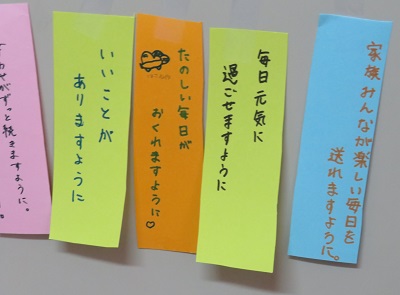 家族みんなが楽しい毎日を
送れますように。
毎日元気に
過ごせますように
たのしい毎日が
おくれますように♡
いいことが
ありますように
がずっと続きますように。